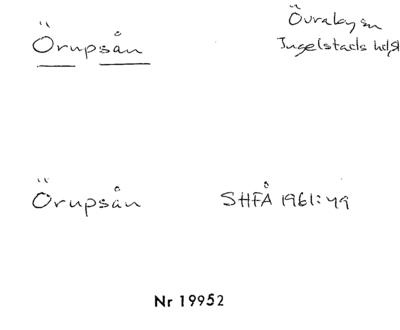 Örupsån
Övraby sn
Ingelstads hd, Sk
Örupsån SHFÅ 1961:49
Nr 19952